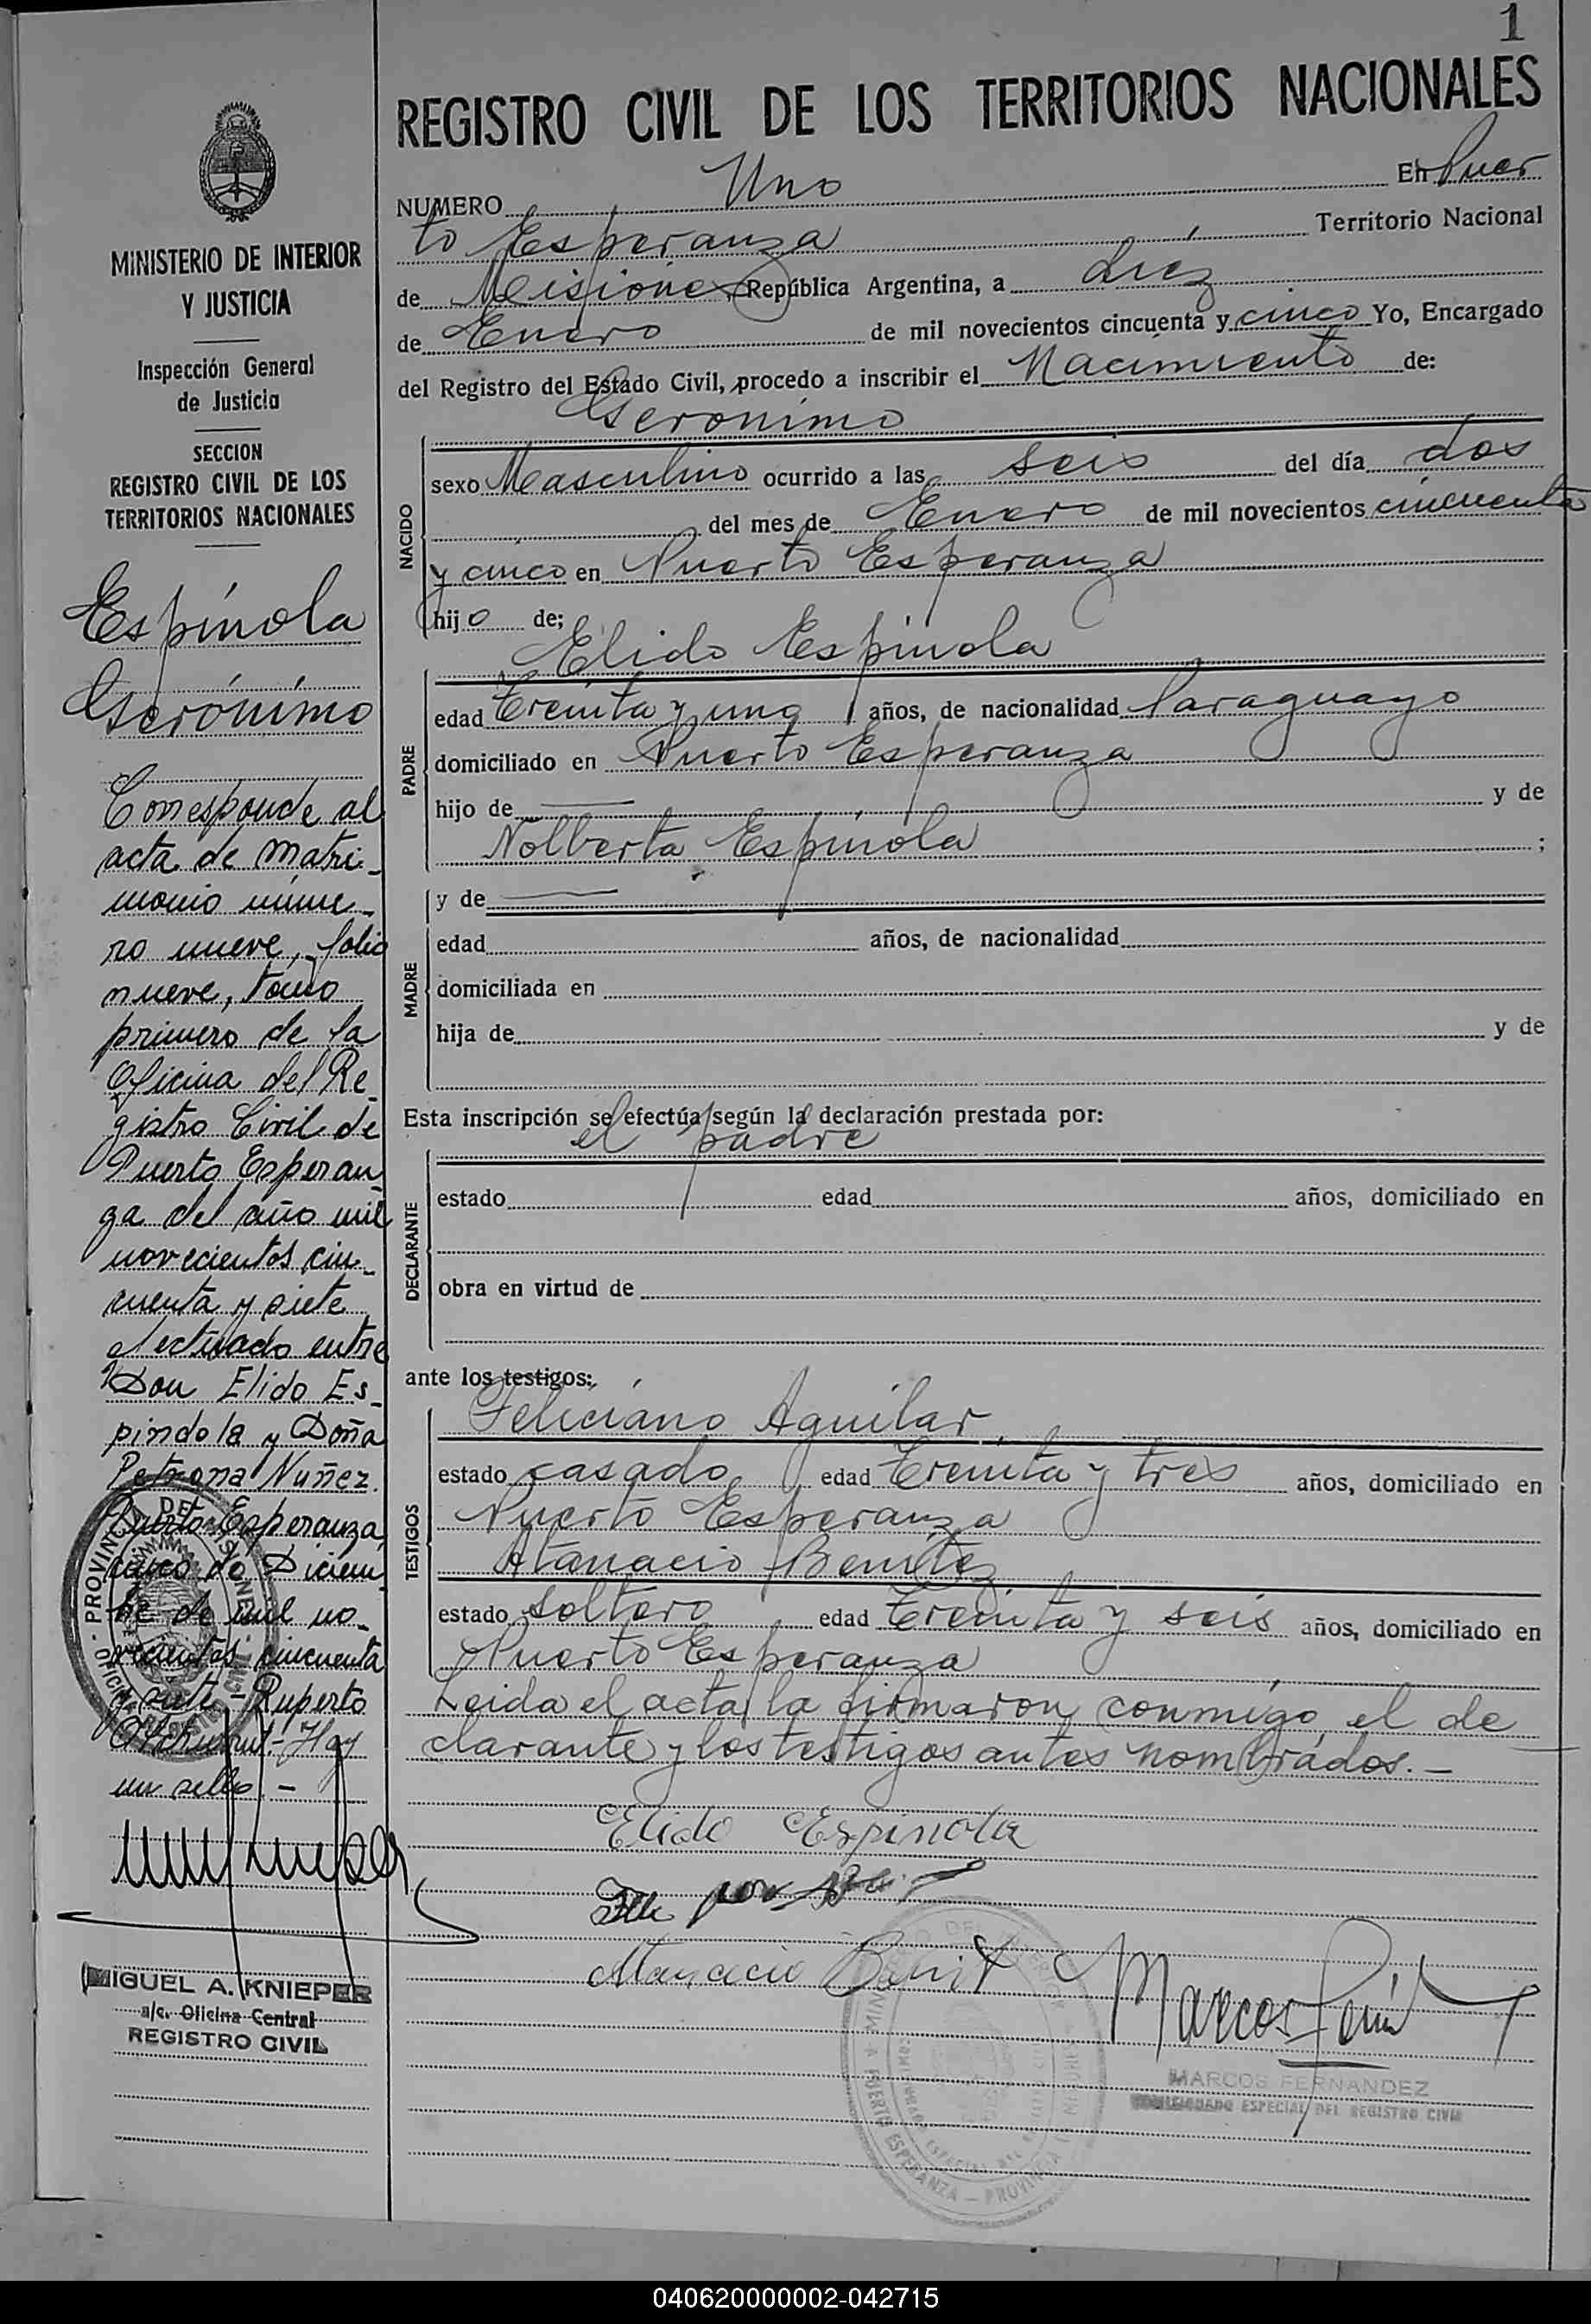 1
REGISTRO CIVIL DE LOS TERRITORIOS NACIONALES
NUMERO Uno En Puer
to Esperanza Territorio Nacional
de Misiones, República Argentina, a diez
de Enero de mil novecientos cincuenta y cinco Yo, Encargado
del Registro del Estado Civil, procedo a inscribir el Nacimiento de:
Gerónimo
NACIDO
sexo Masculino ocurrido a las seis del día dos
del mes de Enero de mil novecientos cincuenta
y cinco en Puerto Esperanza
hijo de;
Elido Espínola
PADRE
edad treinta y uno años, de nacionalidad Paraguayo
domiciliado en Puerto Esperanza
hijo de — y de
Nolberta Espínola ;
y de —
MADRE
edad años, de nacionalidad
domiciliada en
hija de y de
Esta inscripción se efectúa según la declaración prestada por:
el padre
DECLARANTE
estado edad años, domiciliado en
obra en virtud de
ante los testigos:
TESTIGOS
Feliciano Aguilar
estado casado edad treinta y tres años, domiciliado en
Puerto Esperanza
Atanacio Benitez
estado soltero edad treinta y seis años, domiciliado en
Puerto Esperanza
Leida el acta la firmaron conmigo, el de
clarante y los testigos antes nombrados.—
Elido Espinola
Atanacio Benit
Marcos
MARCOS FERNANDEZ
ESPECIAL DEL REGISTRO CIVIL
MINISTERIO DE INTERIOR
Y JUSTICIA
Inspección General
de Justicia
SECCION
REGISTRO CIVIL DE LOS
TERRITORIOS NACIONALES
Espínola
Gerónimo
Corresponde al
acta de matri-
monio núme-
ro nueve, folio
nueve, tomo
primero de la
Oficina del Re
gistro Civil de
Puerto Esperan
za del año mil
novecientos cin-
cuenta y siete
efectuado entre
Don Elido Es-
pindola y Doña
Petrona Nuñez.
Puerto Esperanza,
cinco de Diciem
bre de mil no-
vecientos cincuenta
y siete - Ruperto
Hay
un sello.-
MIGUEL A. KNIEPER
a/c. Oficina Central
REGISTRO CIVIL
040620000002-042715